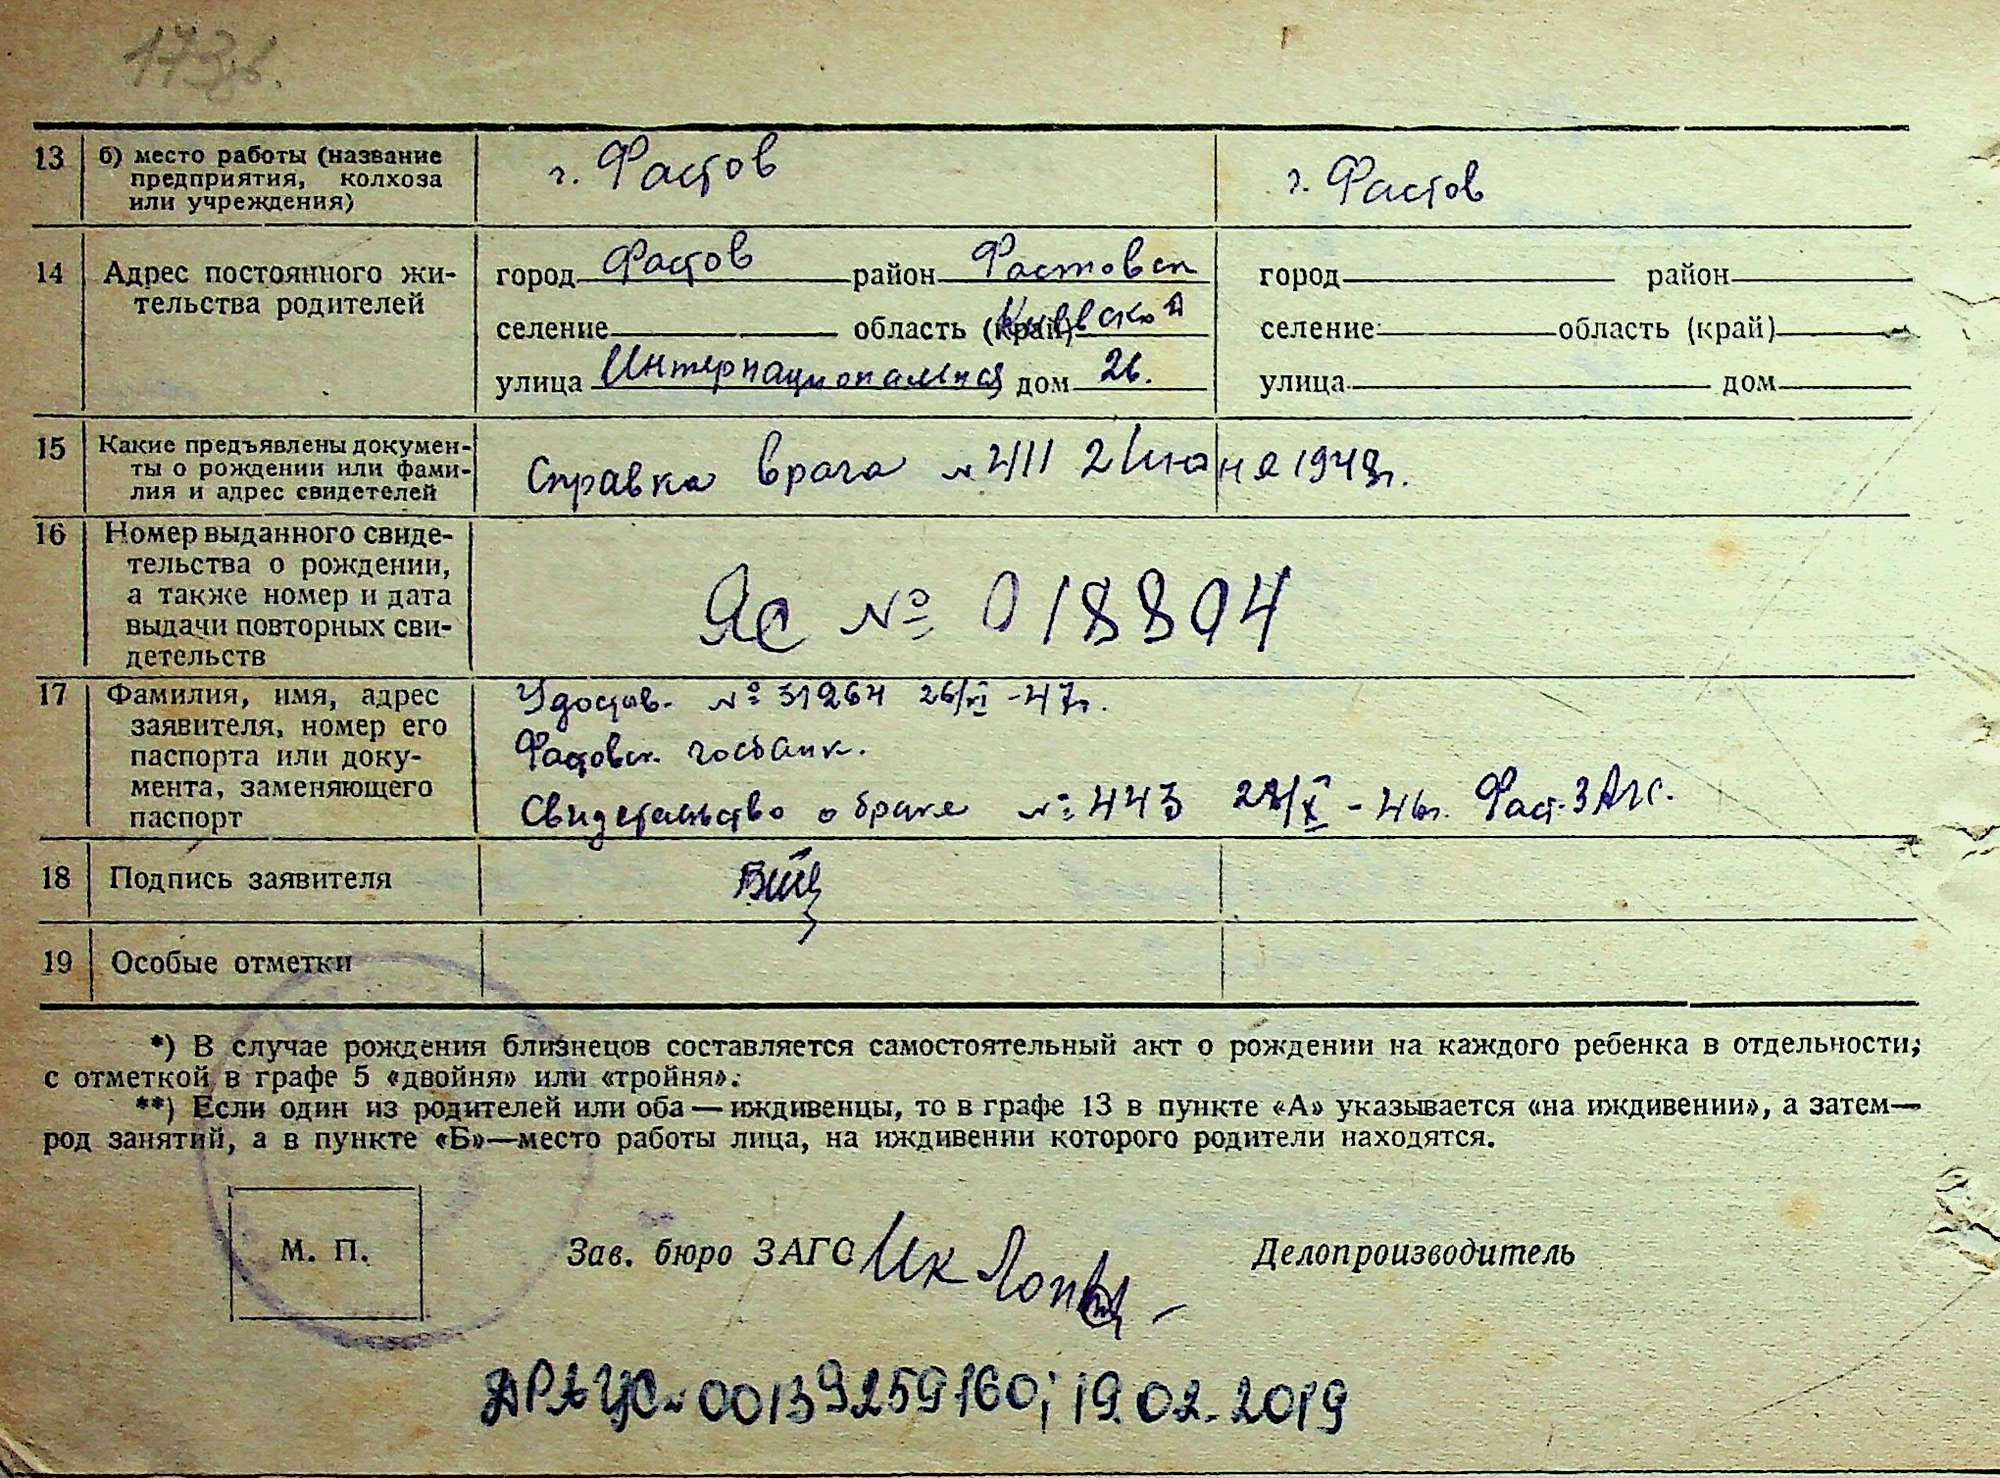 173об.
13 б) место работы (название г. Фастов г. Фастов
предприятия, колхоза
или учреждения)
14 Адрес постоянного жи- город Фастов район Фастовск город район
тельства родителей селение область (край) Киевской селение область (край)
улица Интернациональная дом 26. улица дом
15 Какие предъявлены докумен- Справка врача № 411 2 Июня 1948г.
ты о рождении или фами-
лия и адрес свидетелей
16 Номер выданного свиде-
тельства о рождении,
а также номер и дата ЯС № 018804
выдачи повторных сви-
детельств
17 Фамилия, имя, адрес Удостов. № 31264 26/VI -47г.
заявителя, номер его
паспорта или доку- Фастовск. госбанк.
мента, заменяющего Свидетельство о браке № 443 /X - 46г. Фаст. ЗАГС.
паспорт
18 Подпись заявителя
19 Особые отметки
*) В случае рождения близнецов составляется самостоятельный акт о рождении на каждого ребенка в отдельности;
с отметкой в графе 5 «двойня» или «тройня».
**) Если один из родителей или оба — иждивенцы, то в графе 13 в пункте «А» указывается «на иждивении», а затем—
род занятий, а в пункте «Б»—место работы лица, на иждивении которого родители находятся.
М. П. Зав. бюро ЗАГС Делопроизводитель
ДРАЦС-00139259160; 19.02.2019